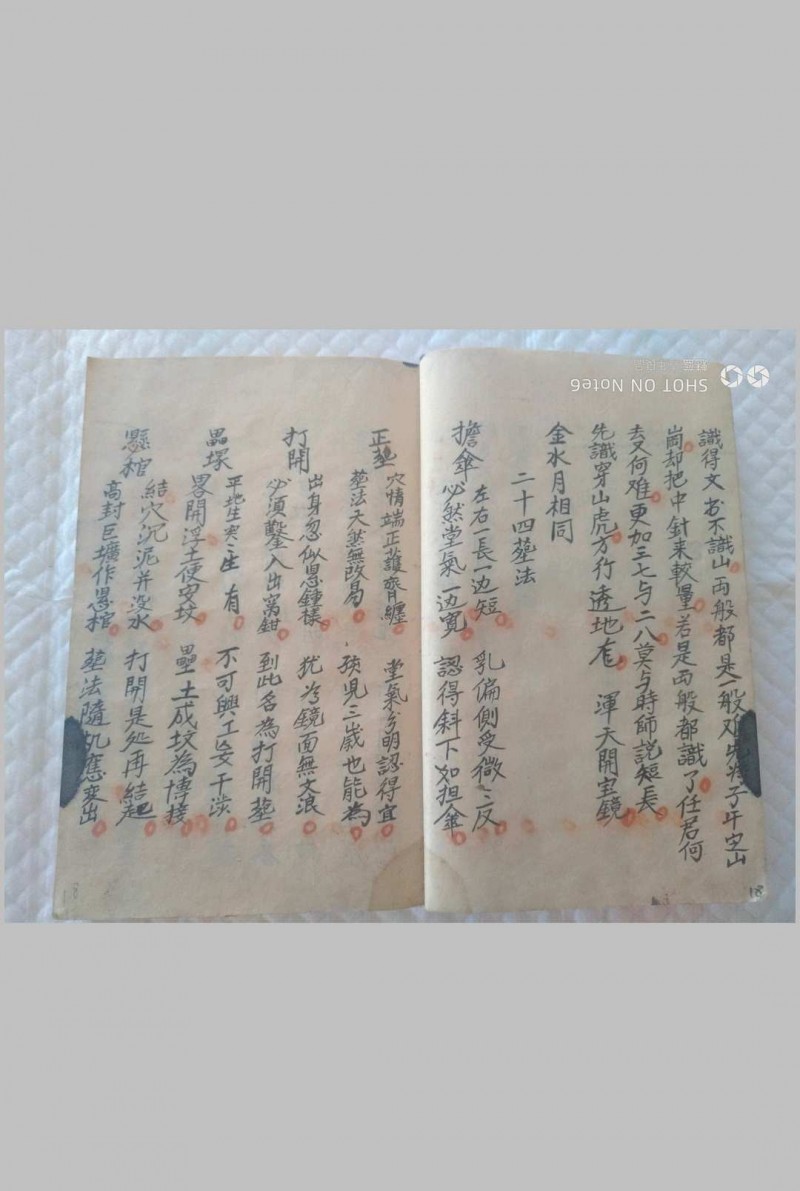 識得文书不識山 両般都是一般难 先将子午定山
崗却把中針来較量 若是両般都識了任君何
去又何难 更加三七与二八莫与時師説短長
先識穿山虎 方行透地 渾天開宝鏡
金水月相同
二十四塟法
擔傘 左右一長一边短 乳偏側受微〻反
必然堂氣一边寬 認得斜下如担傘
正塟 穴情端正護齊纏 堂氣分明認得宜
塟法天然無改易 孩児三歲也能為
打開 出身忽似覆鍾樣 犹為鏡面無文浪
必須鑿入出窩鉗 到此名為打開塟
壘塚 平地生突之生有 不可興工妄干涉
畧開浮土便安坟 壘土成坟為博接
懸棺 結穴沉泥并没水 打開是処再結起
高封巨壙作懸棺 塟法隨机應变出
SHOT ON Note6
18
18